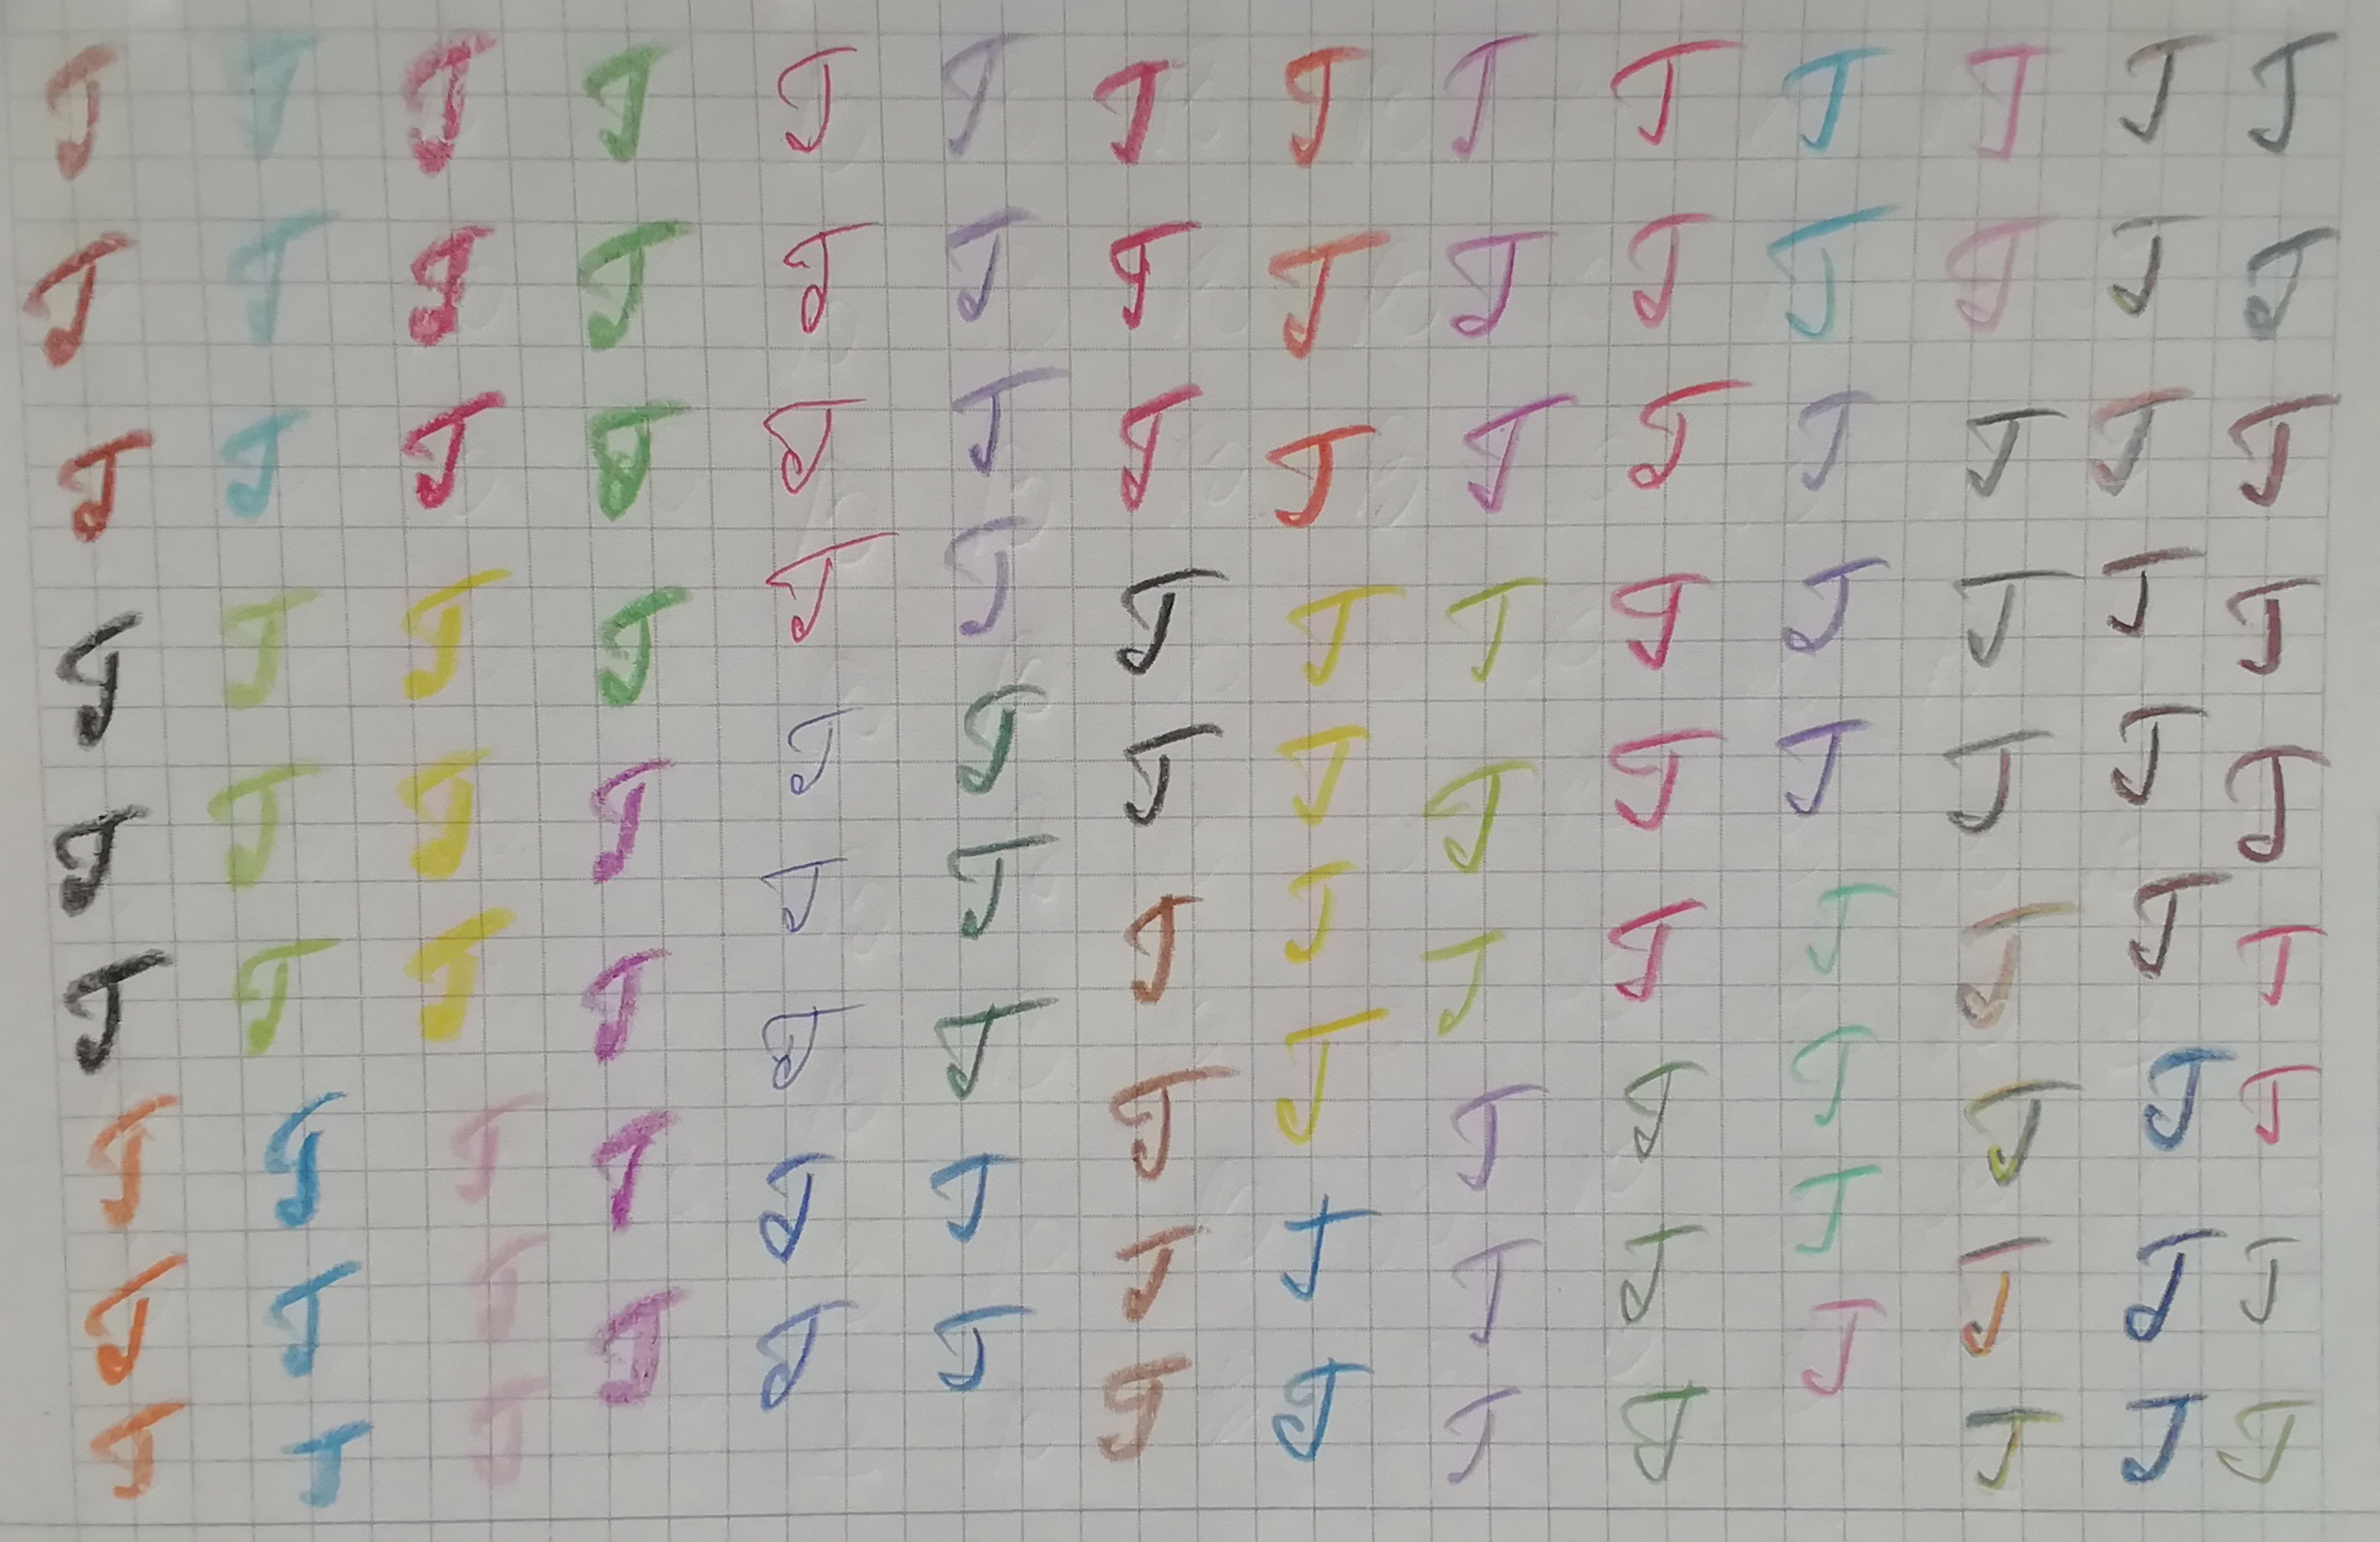 J J J J J J J J J J J J J J
J J J J J J J J J J J J J J
J J J J J J J J J J J J J J
J J J J J J J J J J J J J J
J J J J J J J J J J J J J J
J J J J J J J J J J J J J J
J J J J J J J J J J J J J J
J J J J J J J J J J J J J J
J J J J J J J J J J J J J